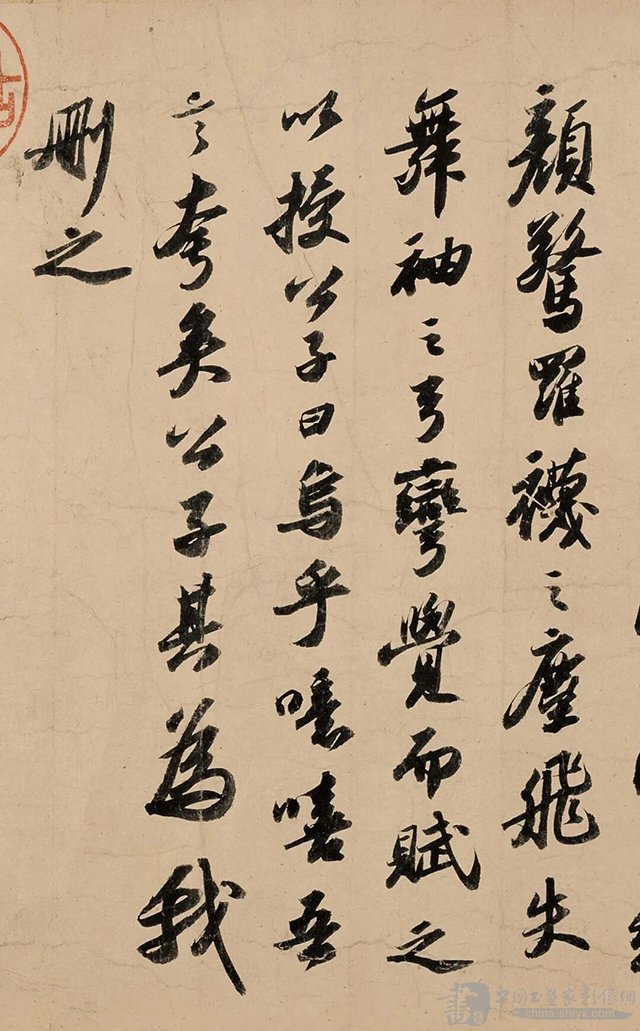 顏驚羅襪之塵飛失
舞袖之弓彎覺而賦之
以授公子曰烏乎噫嘻吾
言夸矣公子其為我
刪之
中國工画家影像網
china-shjyx.com